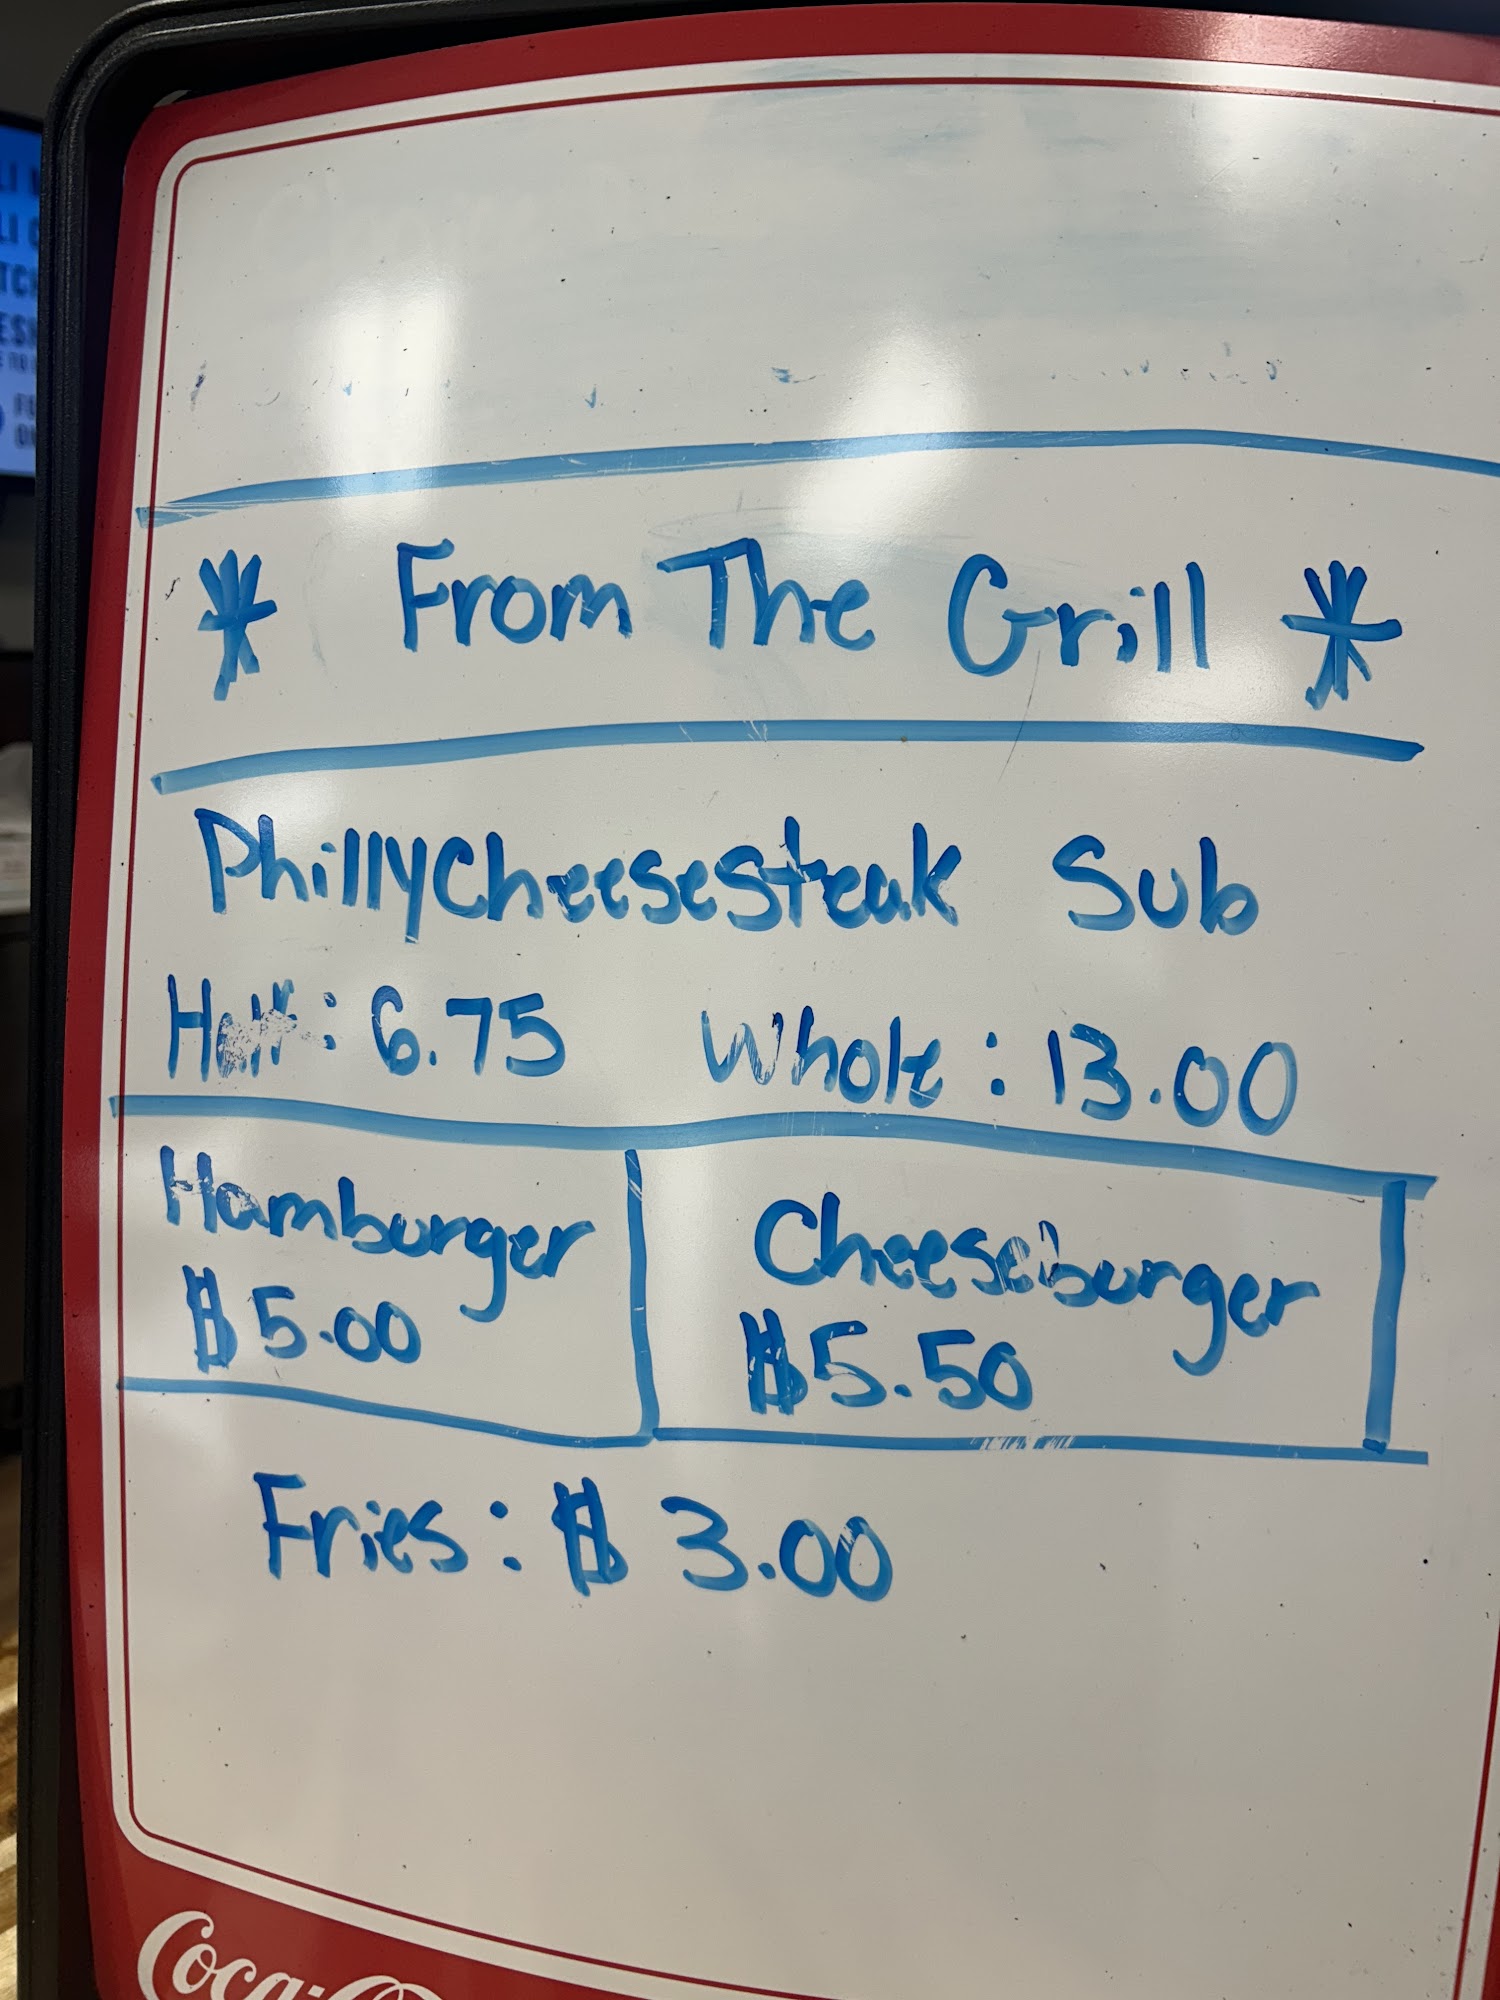 * From The Grill *
PhillyCheesesteak Sub
Half: 6.75 Whole: 13.00
Hamburger
$5.00
Cheeseburger
$5.50
Fries: $ 3.00
Coca-Co